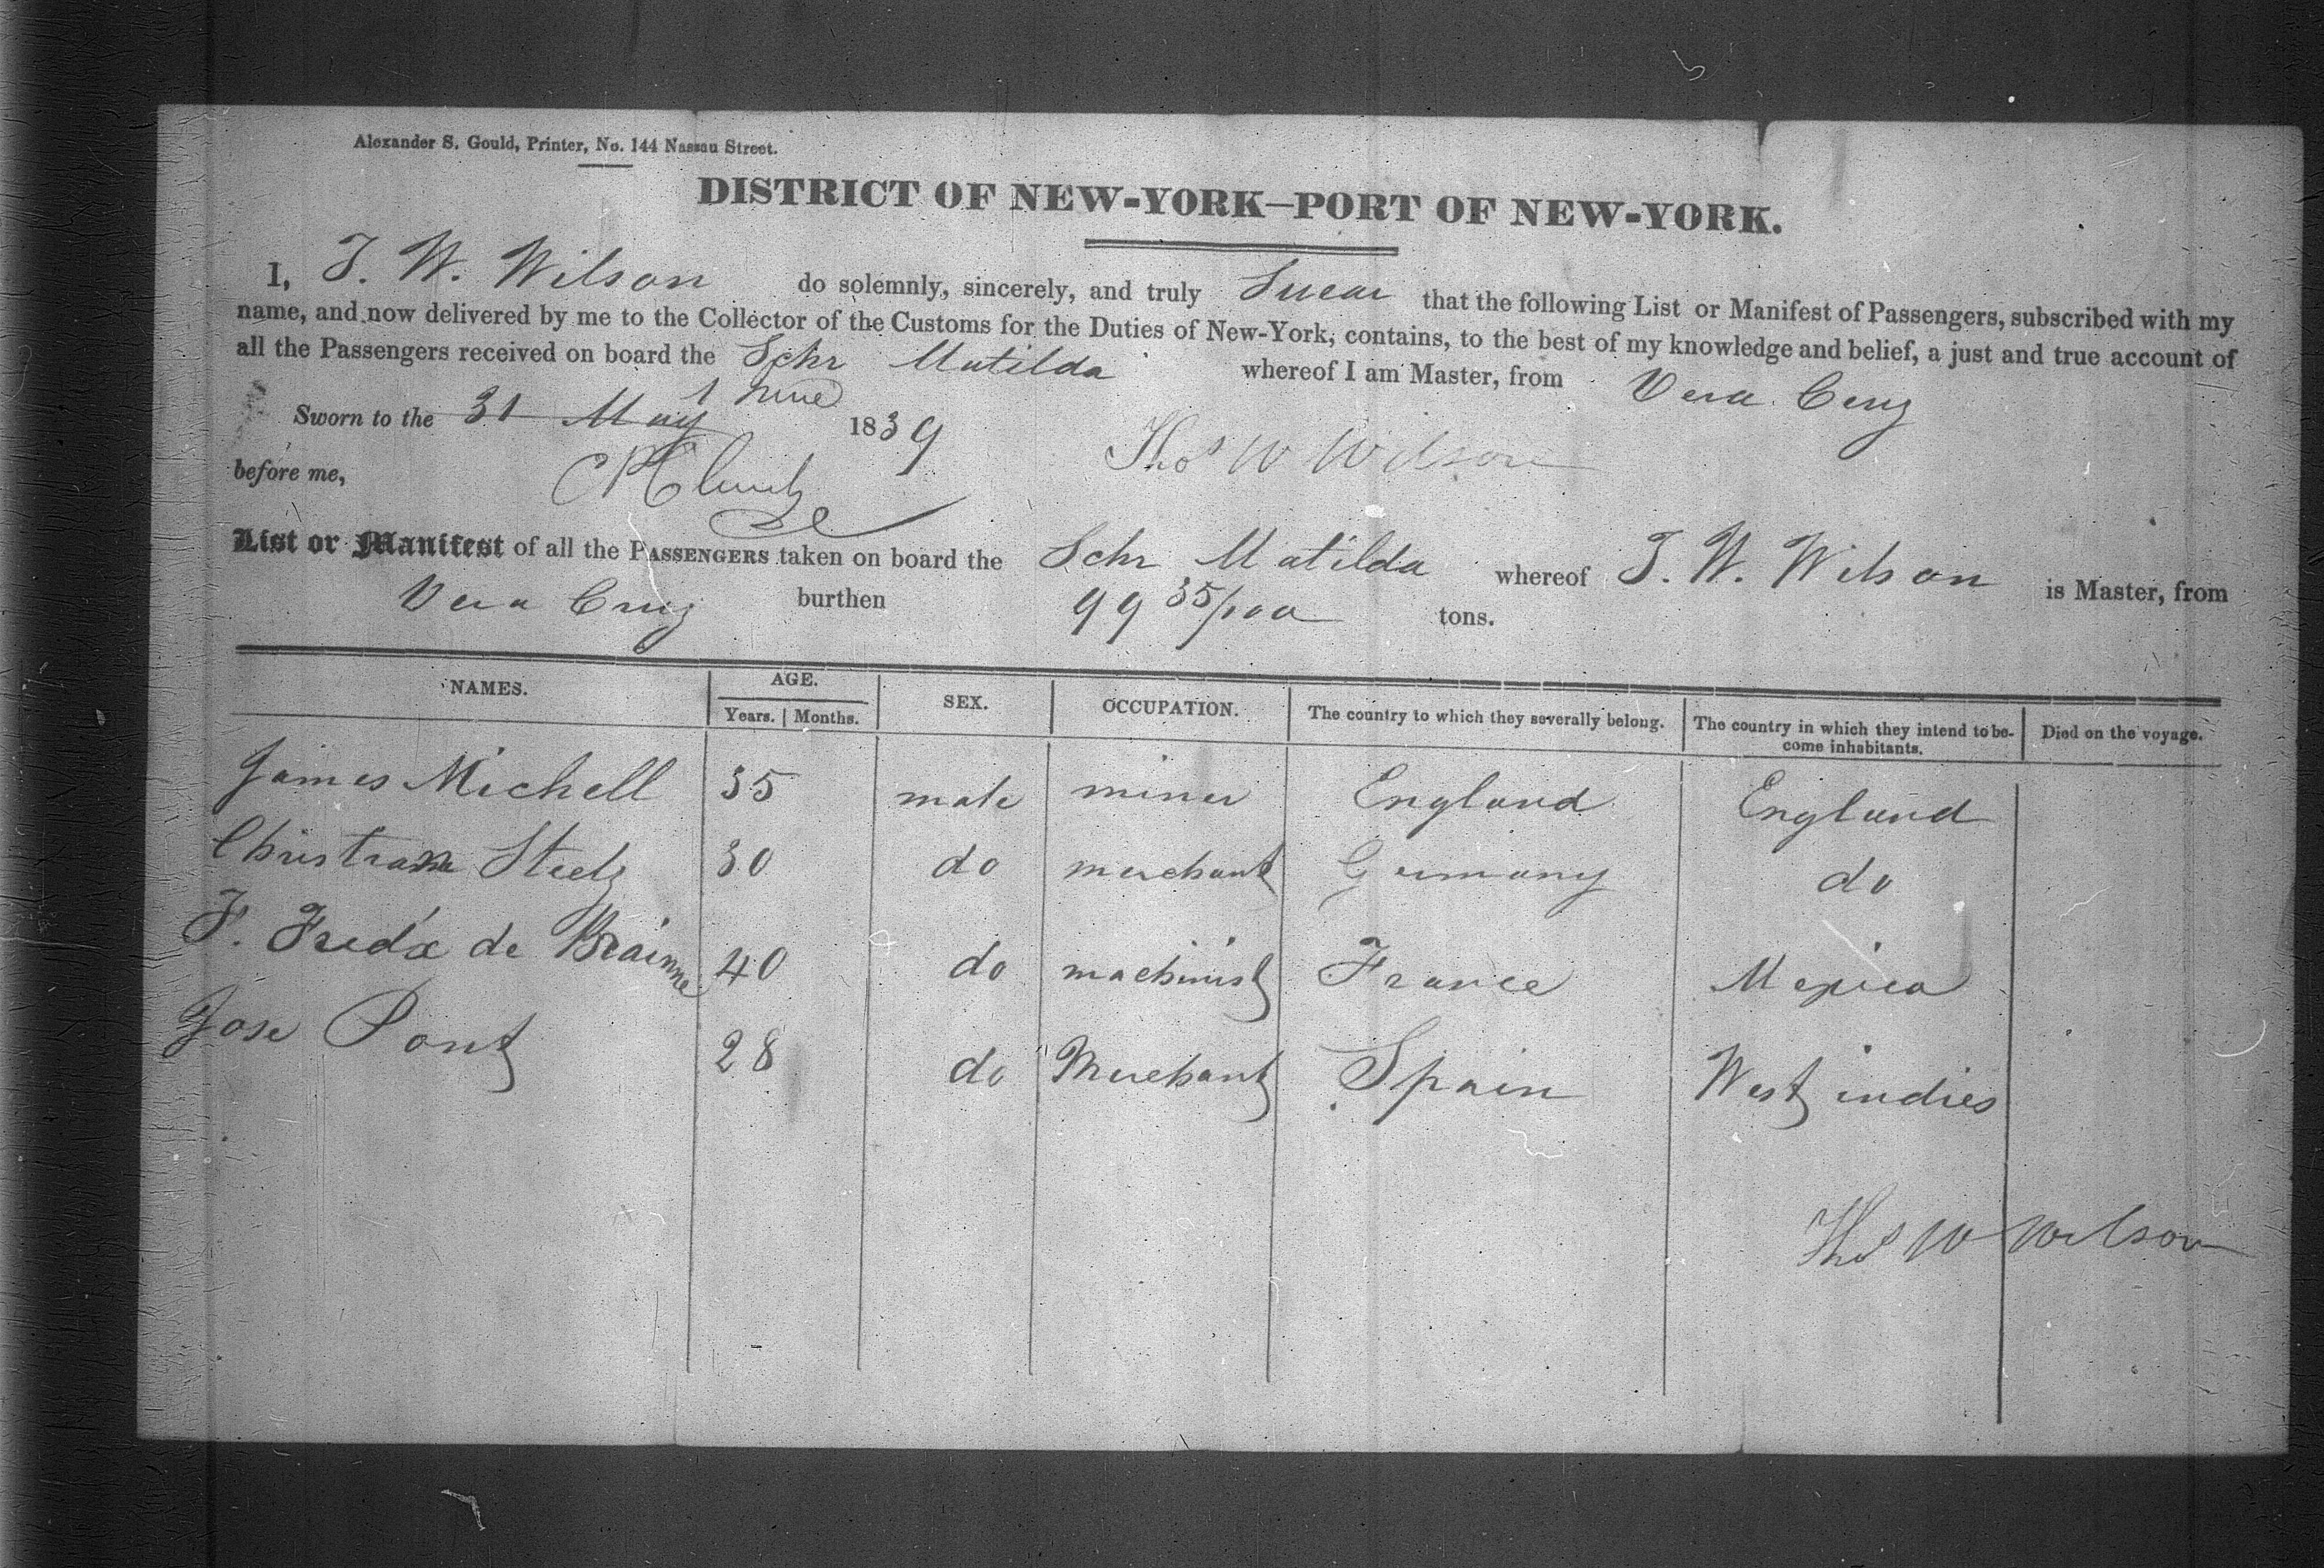 Alexander S. Gould, Printer, No. 144 Nassau Street.
DISTRICT OF NEW-YORK—PORT OF NEW-YORK.
I, T. W. Wilson do solemnly, sincerely, and truly Swear that the following List or Manifest of Passengers, subscribed with my
name, and now delivered by me to the Collector of the Customs for the Duties of New-York, contains, to the best of my knowledge and belief, a just and true account of
all the Passengers received on board the Schr Matilda whereof I am Master, from Vera Cruz
Sworn to the 31 May 1 June 1839
before me, Thos W Wilson
List or Manifest of all the PASSENGERS taken on board the Schr Matilda whereof T. W. Wilson is Master, from
Vera Cruz burthen 99 35/100 tons.
NAMES. AGE. Years. Months. SEX. OCCUPATION. The country to which they severally belong. The country in which they intend to become inhabitants. Died on the voyage.
James Michell 35 male miner England England
Christian 30 do merchant Germany do
F. de 40 do machinist France Mexico
Jose Pont 28 do Merchant Spain West indies
Thos W Wilson